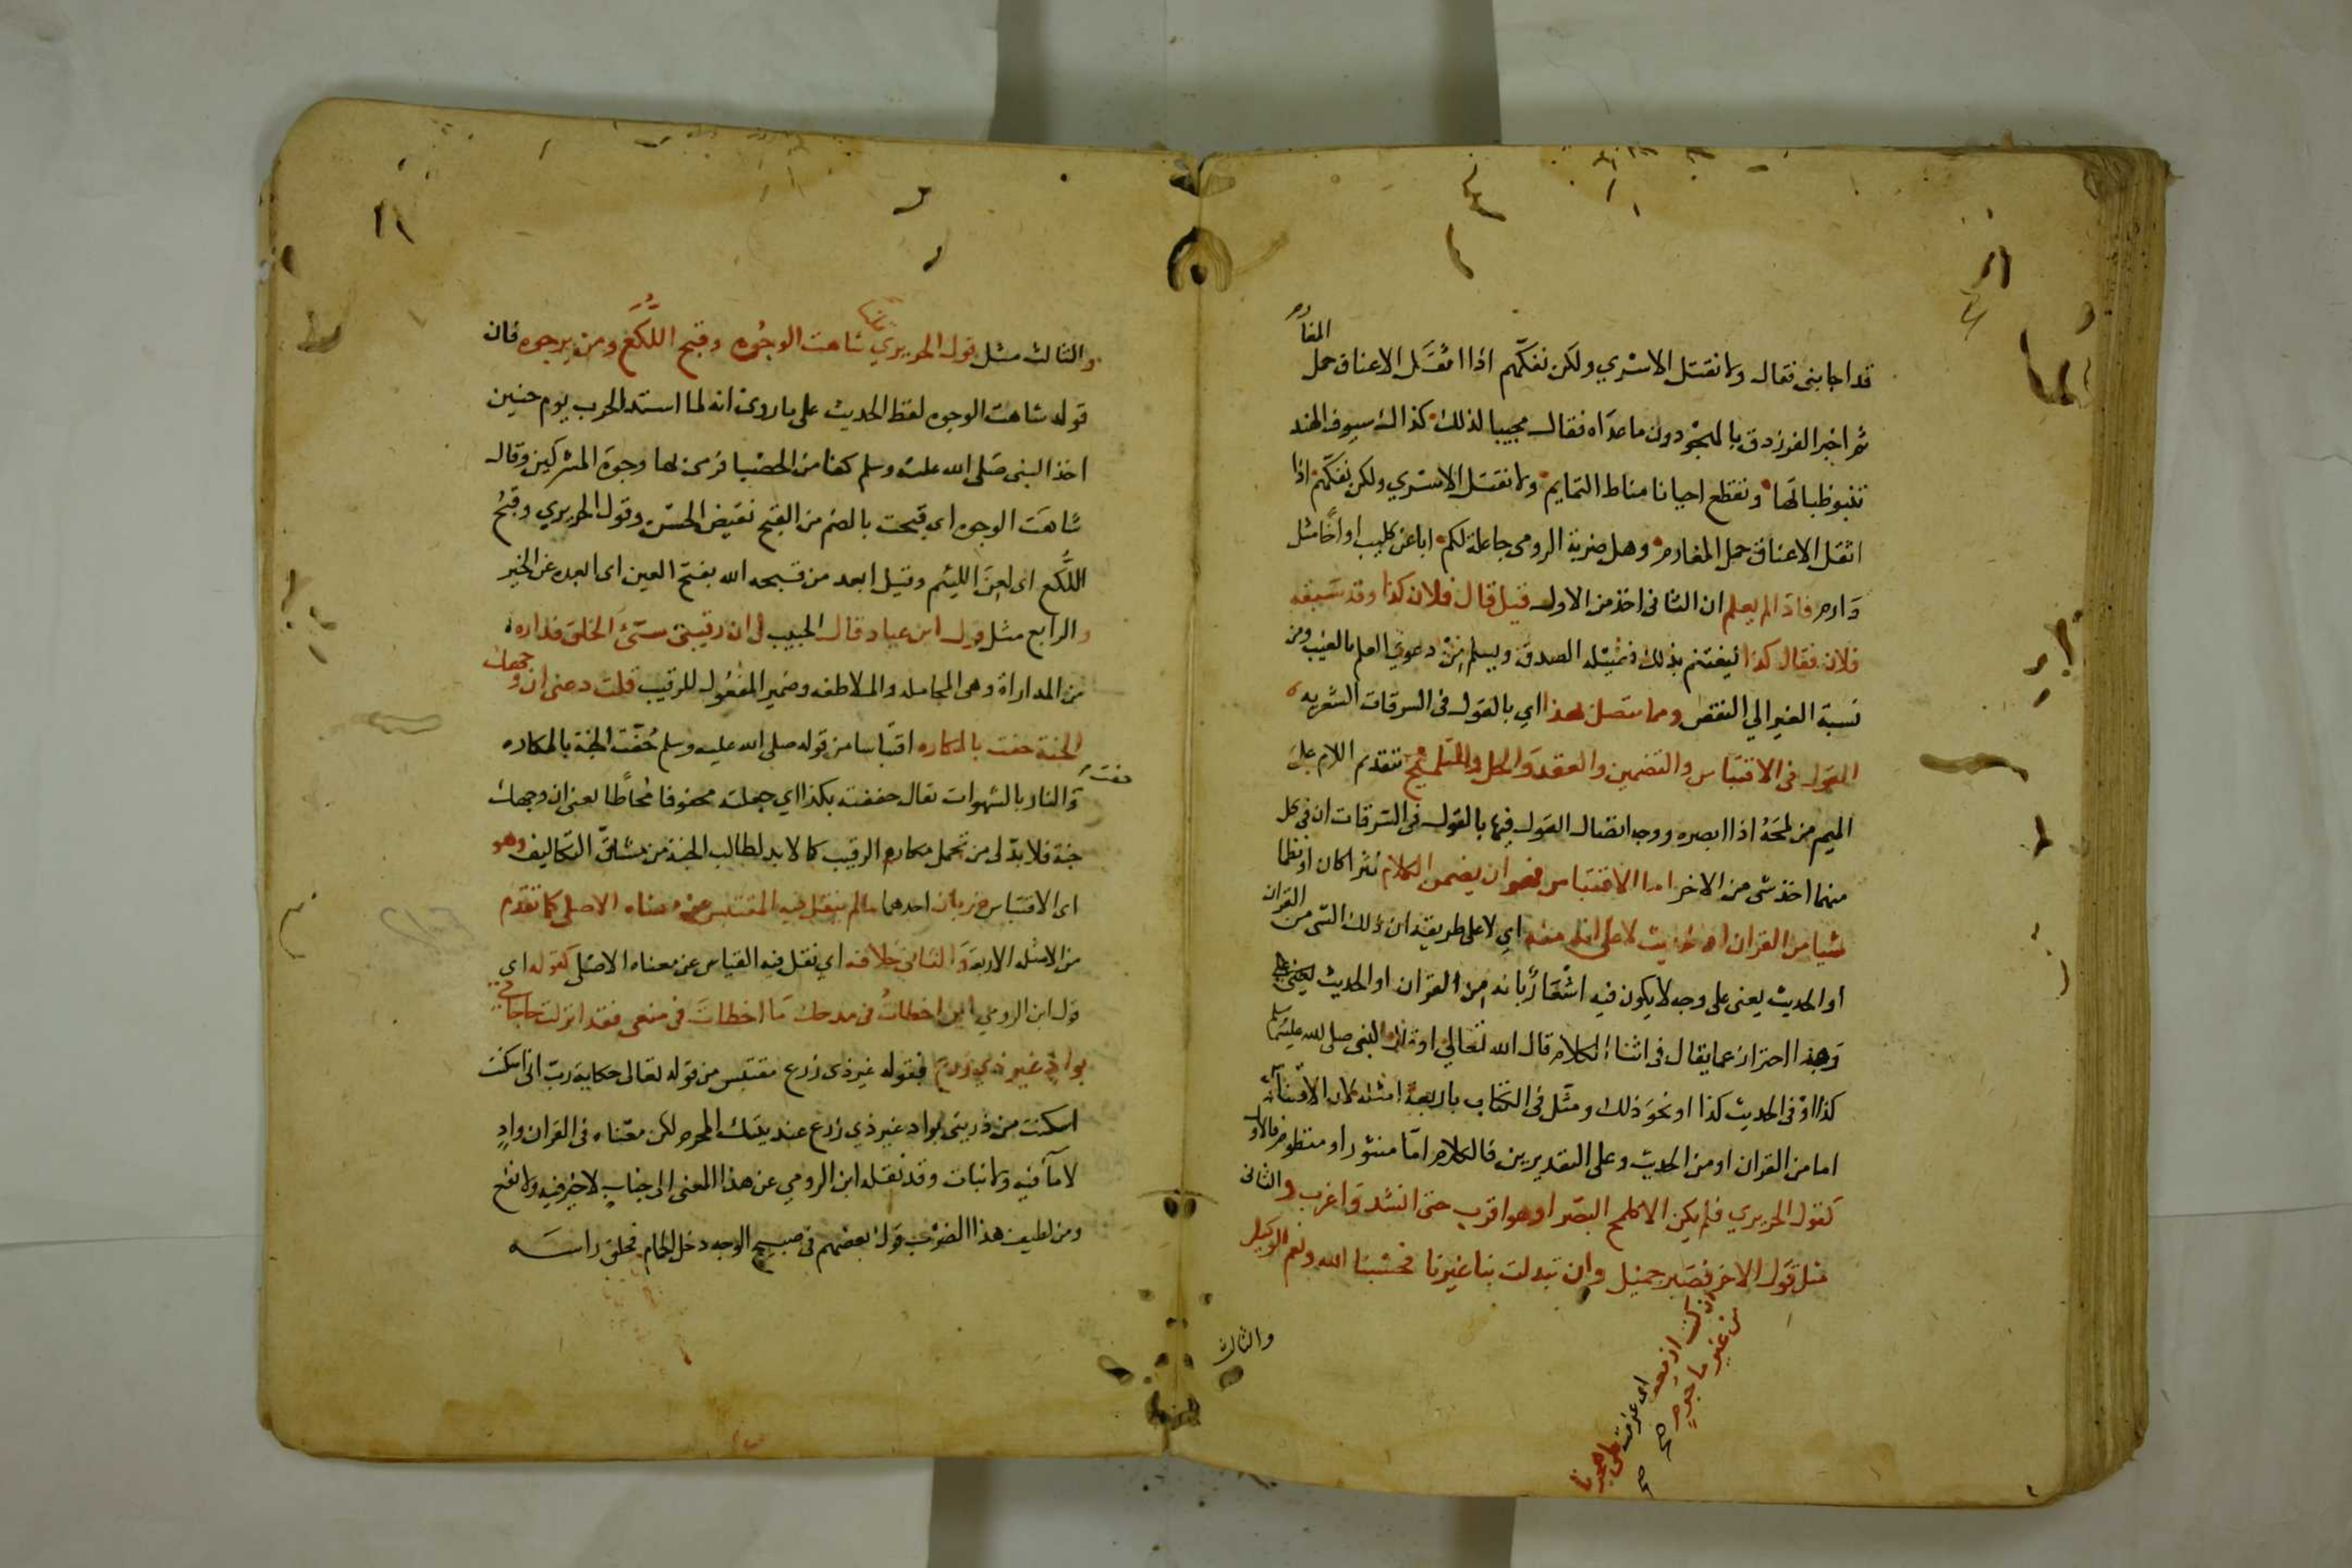 قد اجابنى فقال ولا نقتل الاسري ولكن نفكّهم اذا اثقَل الاعناق حمل المغارم
ثم اخبر الفرزدق بالهجو دون ما عداه فقال مجيبا لذلك كذاك سيوف الهند
تنبو ظباتها ونقطع احيانا مناط التمايم ولا نقتل الاسري ولكن نفكّهم اذا
اثقل الاعناق حمل المغارم وهل ضربة الرومى جاعلة لكم ابا عن كليب او اخًا مثل
دَارم فاذا لم يعلم ان الثانى اخذ من الاول قيل قال فلان كذا وقد سَبقه
فلان فقال كذا ليغتنم بذلك فضيلة الصدق ويسلم مِنْ دعوي العلم بالغيب ومن
نسبة الغير الي النقص ومما يتصل بهذا اي بالقول فى السرقات الشعريه
القول فى الاقتباس والتضمين والعقد والحل والتلميح بتقديم اللام على
الميم من لمحَهُ اذا ابصره ووجه اتصال القول فيها بالقول فى السّرقات ان فى كل
منهما اخذ شى من الاخر اما الاقتباس فهو ان يضمن الكلام نثرا كان او نظما
شيا من القران او الحديث لا على انه منه اي لا على طريقة ان ذلك الشى من القران
او الحديث يعنى على وجه لا يكون فيه اشعَارٌ بانه من القران او الحديث
وهذا احتراز عما يقال فى اثناء الكلام قال الله تعالي او قال النبى صلى الله عليه وسلم
كذا اوْ فى الحديث كذا او نحوَ ذلك ومثّل فى الكتاب باربعة امثلة لان الاقتباس
اما من القران او من الحديث وعلى التقديرين فالكلام امّا منثور او منظوم فالاول
كقول الحريري فلم يكن الا كلمح البصَر او هو اقرب حتى انشد وَاغرب والثانى
مثل قَول الاخر ان كنت ازمعت اى عزمت على هجرنا من غير ما جرم صح فصَبر جميل وان تبدلت بنا غيرنا فحسْبنا الله ونعم الوكيل
والثالث
١١
والثالث مثل قول الحريري شاهت الوجُوه وقبح اللُّكَع ومن يرجوه فان
قوله شاهت الوجوه لفظ الحديث على ما روى انه لما اشتد الحرب يوم حنين
اخذ النبى صَلى الله عليه وسلم كفا من الحصْبا فرمى بها وجوهَ المشركين وقال
شاهَت الوجوه اي قبحت بالضم من القبح نقيض الحسْن وقول الحريري وقبح
اللُّكَع اى لعِنَ الليئم وقيل ابعد من قبحه الله بفتح العين اى ابعده عن الخير
والرابع مثل قول ابن عباد قال الحبيب لى ان رقيبى سيّئ الخلق فداره
من المداراة وهى المجامله والملاطفه وضمير المفعُول للرقيب قلت دعنى وجهك
الجنة حفت بالمكاره اقتباسا من قوله صلى الله عليه وسلم حُفّت الجنة بالمكاره
وَالنار بالشهوات يقال حففته بكذا اي جعلته محفوفا مُحاطًا يعنى ان وجهك
جنة فلا بدّ لى من تحمل مكاره الرقيب كما لا بد لطالب الجنة من مشاقّ التكاليف وهو
اى الاقتباس ضربان احدهما ما لم ينقل فيه المقتبس عن معناه الاصلى كما تقدّم
من الامثله الاربعة وَالثانى خلافه اي نقل فيه القتباس عن معناه الاصْلى كقوله اي
قول ابن الرومي لئن اخطاتُ فى مدحك مَا اخطاتَ فى منعى فقد انزلت حاجاتى
بواد غير ذي زرع فقوله غير ذى زرع مقتبس من قوله تعالى حكاية ربّ انى اسكنت
اسكنت من ذريتى بواد غير ذي زرع عند بيتك المحرم لكن معناه فى القران وادٍ
لا مآ فيه ولا نبات وقد نقله ابن الرومي عن هذا المعنى الى جنابٍ لا خير فيه ولا نفع
ومن لطيف هذا الضرْب قولُ بعضهم فى صبيح الوجه دخل الحمام فحلق راسَه